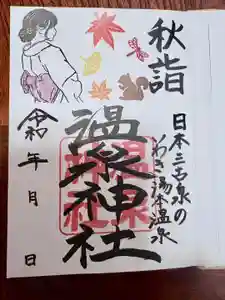 秋詣
日本三古泉の
いわき湯本温泉
温泉神社
温泉神社
令和 年 月 日